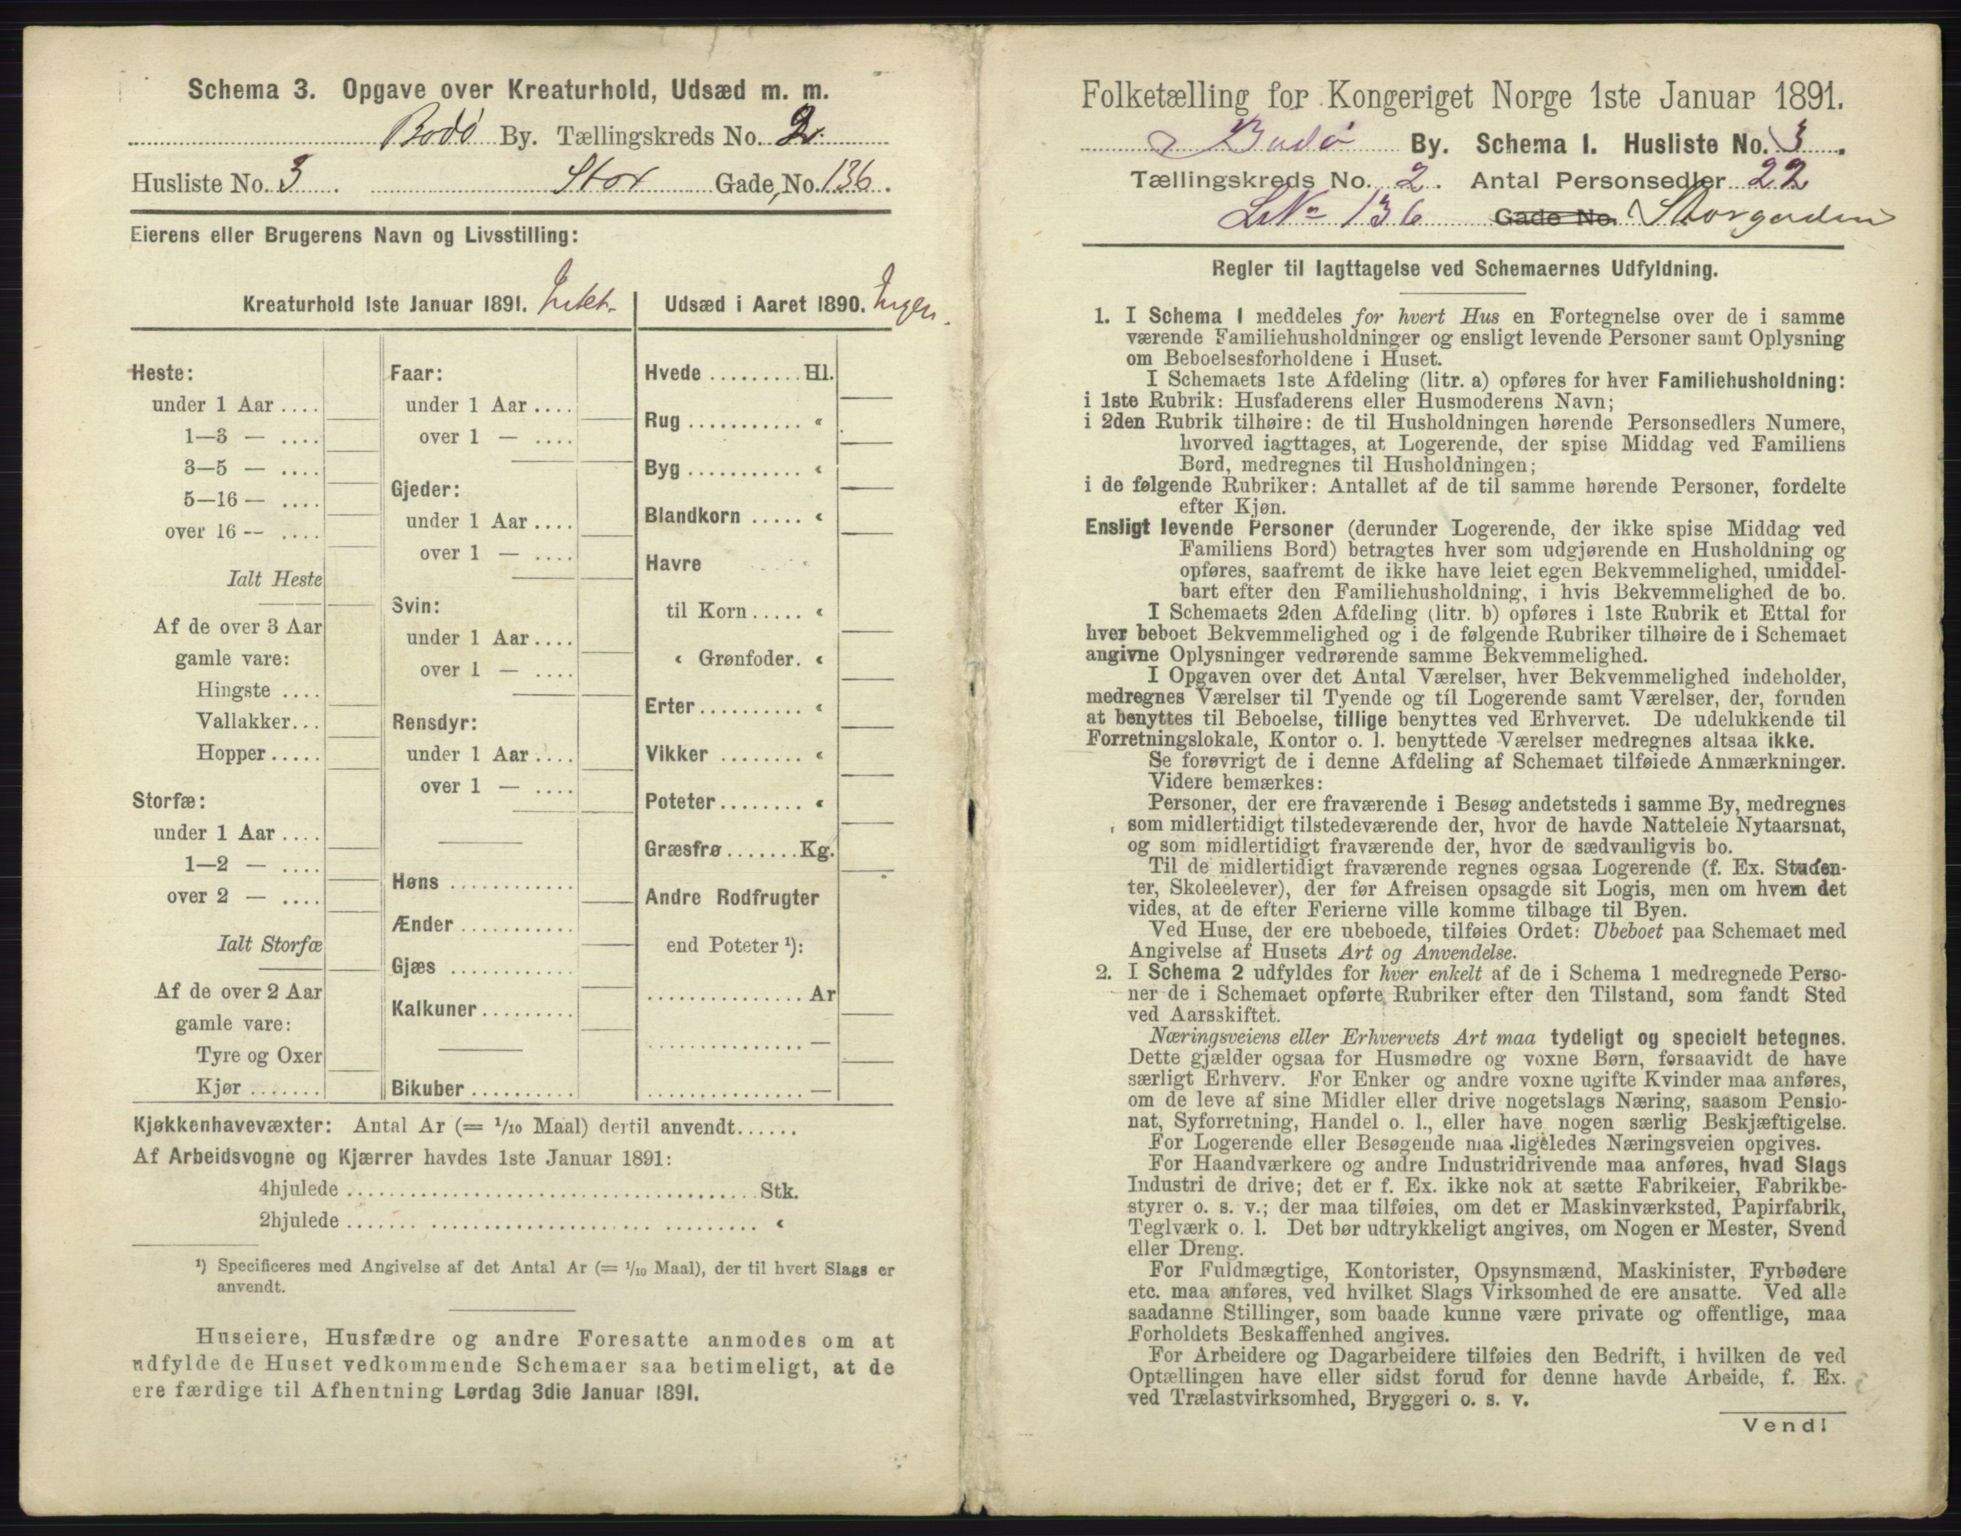 Schema 3. Opgave over Kreaturhold, Udsæd m. m.
Bodø By. Tællingskreds No. 2.
Husliste No. 3. Stor Gade, No. 136.
Eierens eller Brugerens Navn og Livsstilling:
Kreaturhold 1ste Januar 1891. Intet.
Heste:
under 1 Aar ....
1—3 — ....
3—5 — ....
5—16 — ....
over 16 — ....
Ialt Heste
Af de over 3 Aar
gamle vare:
Hingste ....
Vallakker...
Hopper.....
Storfæ:
under 1 Aar ....
1—2 — ....
over 2 — ....
Ialt Storfæ
Af de over 2 Aar
gamle vare:
Tyre og Oxer
Kjør .......
Faar:
under 1 Aar ....
over 1 — ....
Gjeder:
under 1 Aar ....
over 1 — ....
Svin:
under 1 Aar ....
over 1 — ....
Rensdyr:
under 1 Aar ....
over 1 — ....
Høns ...........
Ænder ..........
Gjæs ...........
Kalkuner ........
Bikuber .........
Udsæd i Aaret 1890. Ingen.
Hvede ......... Hl.
Rug ........... «
Byg ........... «
Blandkorn ..... «
Havre
til Korn ..... «
« Grønfoder. «
Erter.......... «
Vikker ........ «
Poteter........ «
Græsfrø ....... Kg.
Andre Rodfrugter
end Poteter ¹):
............... Ar
............... —
............... —
Kjøkkenhavevæxter: Antal Ar (= 1/10 Maal) dertil anvendt......
Af Arbeidsvogne og Kjærrer havdes 1ste Januar 1891:
4hjulede ........................................ Stk.
2hjulede ........................................ «
¹) Specificeres med Angivelse af det Antal Ar (= 1/10 Maal), der til hvert Slags er
anvendt.
Huseiere, Husfædre og andre Foresatte anmodes om at
udfylde de Huset vedkommende Schemaer saa betimeligt, at de
ere færdige til Afhentning Lørdag 3die Januar 1891.
Folketælling for Kongeriget Norge 1ste Januar 1891.
Bodø By. Schema 1. Husliste No. 3.
Tællingskreds No. 2. Antal Personsedler 22
LNo 136 Gade No. Storgaden
Regler til Iagttagelse ved Schemaernes Udfyldning.
1. I Schema 1 meddeles for hvert Hus en Fortegnelse over de i samme
værende Familiehusholdninger og ensligt levende Personer samt Oplysning
om Beboelsesforholdene i Huset.
I Schemaets 1ste Afdeling (litr. a) opføres for hver Familiehusholdning:
i 1ste Rubrik: Husfaderens eller Husmoderens Navn;
i 2den Rubrik tilhøire: de til Husholdningen hørende Personsedlers Numere,
hvorved iagttages, at Logerende, der spise Middag ved Familiens
Bord, medregnes til Husholdningen;
i de følgende Rubriker: Antallet af de til samme hørende Personer, fordelte
efter Kjøn.
Ensligt levende Personer (derunder Logerende, der ikke spise Middag ved
Familiens Bord) betragtes hver som udgjørende en Husholdning og
opføres, saafremt de ikke have leiet egen Bekvemmelighed, umiddel-
bart efter den Familiehusholdning, i hvis Bekvemmelighed de bo.
I Schemaets 2den Afdeling (litr. b) opføres i 1ste Rubrik et Ettal for
hver beboet Bekvemmelighed og i de følgende Rubriker tilhøire de i Schemaet
angivne Oplysninger vedrørende samme Bekvemmelighed.
I Opgaven over det Antal Værelser, hver Bekvemmelighed indeholder,
medregnes Værelser til Tyende og til Logerende samt Værelser, der, foruden
at benyttes til Beboelse, tillige benyttes ved Erhvervet. De udelukkende til
Forretningslokale, Kontor o. l. benyttede Værelser medregnes altsaa ikke.
Se forøvrigt de i denne Afdeling af Schemaet tilføiede Anmærkninger.
Videre bemærkes:
Personer, der ere fraværende i Besøg andetsteds i samme By, medregnes
som midlertidigt tilstedeværende der, hvor de havde Natteleie Nytaarsnat,
og som midlertidigt fraværende der, hvor de sædvanligvis bo.
Til de midlertidigt fraværende regnes ogsaa Logerende (f. Ex. Studen-
ter, Skoleelever), der før Afreisen opsagde sit Logis, men om hvem det
vides, at de efter Ferierne ville komme tilbage til Byen.
Ved Huse, der ere ubeboede, tilføies Ordet: Ubeboet paa Schemaet med
Angivelse af Husets Art og Anvendelse.
2. I Schema 2 udfyldes for hver enkelt af de i Schema 1 medregnede Perso-
ner de i Schemaet opførte Rubriker efter den Tilstand, som fandt Sted
ved Aarsskiftet.
Næringsveiens eller Erhvervets Art maa tydeligt og specielt betegnes.
Dette gjælder ogsaa for Husmødre og voxne Børn, forsaavidt de have
særligt Erhverv. For Enker og andre voxne ugifte Kvinder maa anføres,
om de leve af sine Midler eller drive nogetslags Næring, saasom Pensio-
nat, Syforretning, Handel o. l., eller have nogen særlig Beskjæftigelse.
For Logerende eller Besøgende maa ligeledes Næringsveien opgives.
For Haandværkere og andre Industridrivende maa anføres, hvad Slags
Industri de drive; det er f. Ex. ikke nok at sætte Fabrikeier, Fabrikbe-
styrer o. s. v.; der maa tilføies, om det er Maskinværksted, Papirfabrik,
Teglværk o. l. Det bør udtrykkeligt angives, om Nogen er Mester, Svend
eller Dreng.
For Fuldmægtige, Kontorister, Opsynsmænd, Maskinister, Fyrbødere
etc. maa anføres, ved hvilket Slags Virksomhed de ere ansatte. Ved alle
saadanne Stillinger, som baade kunne være private og offentlige, maa
Forholdets Beskaffenhed angives.
For Arbeidere og Dagarbeidere tilføies den Bedrift, i hvilken de ved
Optællingen have eller sidst forud for denne havde Arbeide, f. Ex.
ved Trælastvirksomhed, Bryggeri o. s. v.
Vend!